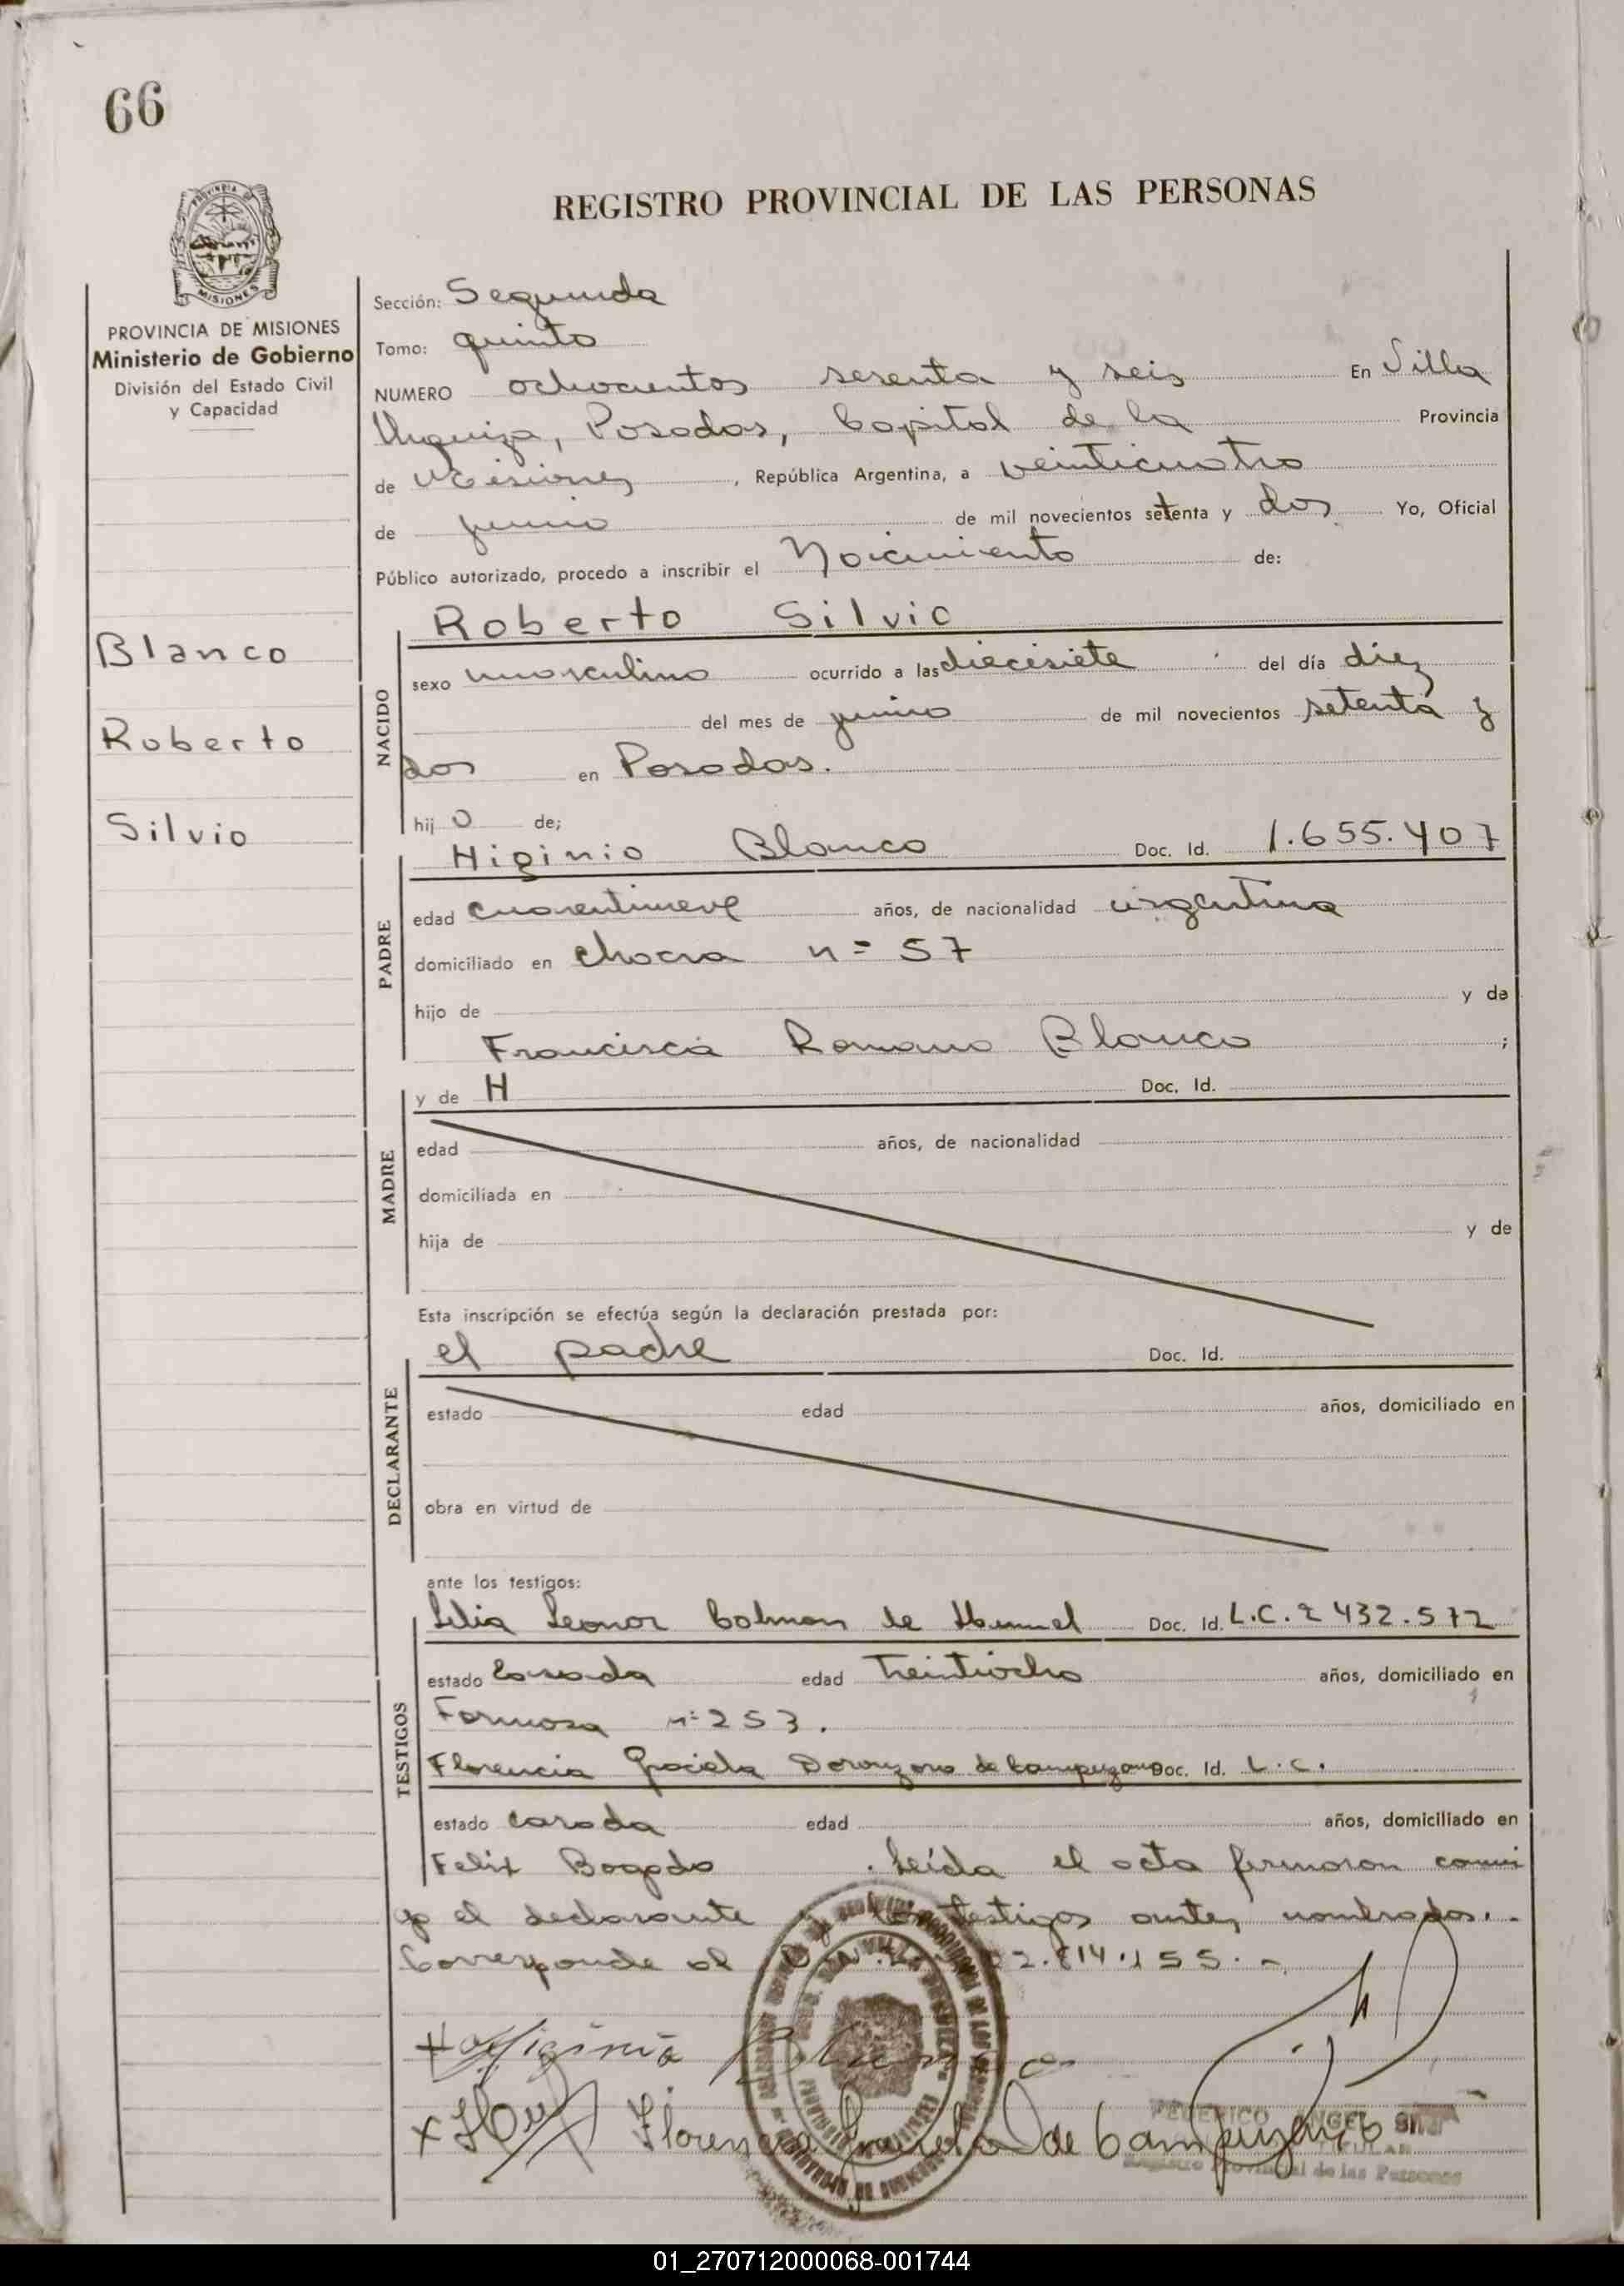 66
REGISTRO PROVINCIAL DE LAS PERSONAS
PROVINCIA DE
MISIONES
PROVINCIA DE MISIONES
Ministerio de Gobierno
División del Estado Civil
y Capacidad
Blanco
Roberto
Silvio
Sección: Segunda
Tomo: quinto
NUMERO ochocientos sesenta y seis En Villa
Urquiza, Posadas, Capital de la Provincia
de Misiones, República Argentina, a veinticuatro
de junio de mil novecientos setenta y dos Yo, Oficial
Público autorizado, procedo a inscribir el Nacimiento de:
Roberto Silvio
NACIDO
sexo masculino ocurrido a las diecisiete del día diez
del mes de junio de mil novecientos setenta y
dos en Posadas.
hijo de;
Higinio Blanco Doc. Id. 1.655.407
PADRE
edad cuarentinueve años, de nacionalidad argentina
domiciliado en chacra n= 57
hijo de y de
Francisca Romana Blanco ;
y de H Doc. Id.
MADRE
edad años, de nacionalidad
domiciliada en
hija de y de
Esta inscripción se efectúa según la declaración prestada por:
el padre Doc. Id.
DECLARANTE
estado edad años, domiciliado en
obra en virtud de
ante los testigos:
TESTIGOS
Lilia Leonor Colman de Doc. Id. L.C. 2 432.572
estado casada edad treintiocho años, domiciliado en
Formosa n= 253.
Florencia Graciela de Campuzano Doc. Id. L.C.
estado casada edad años, domiciliado en
Felix Bogado . Leída el acta firmaron conmi
go el declarante y los testigos antes nombrados.-
Corresponde al 22.814.155.-
Higinio Blanco
Florencia Graciela de Campuzano
FEDERICO ANGEL
TITULAR
Registro Provincial de las Personas
01_270712000068-001744